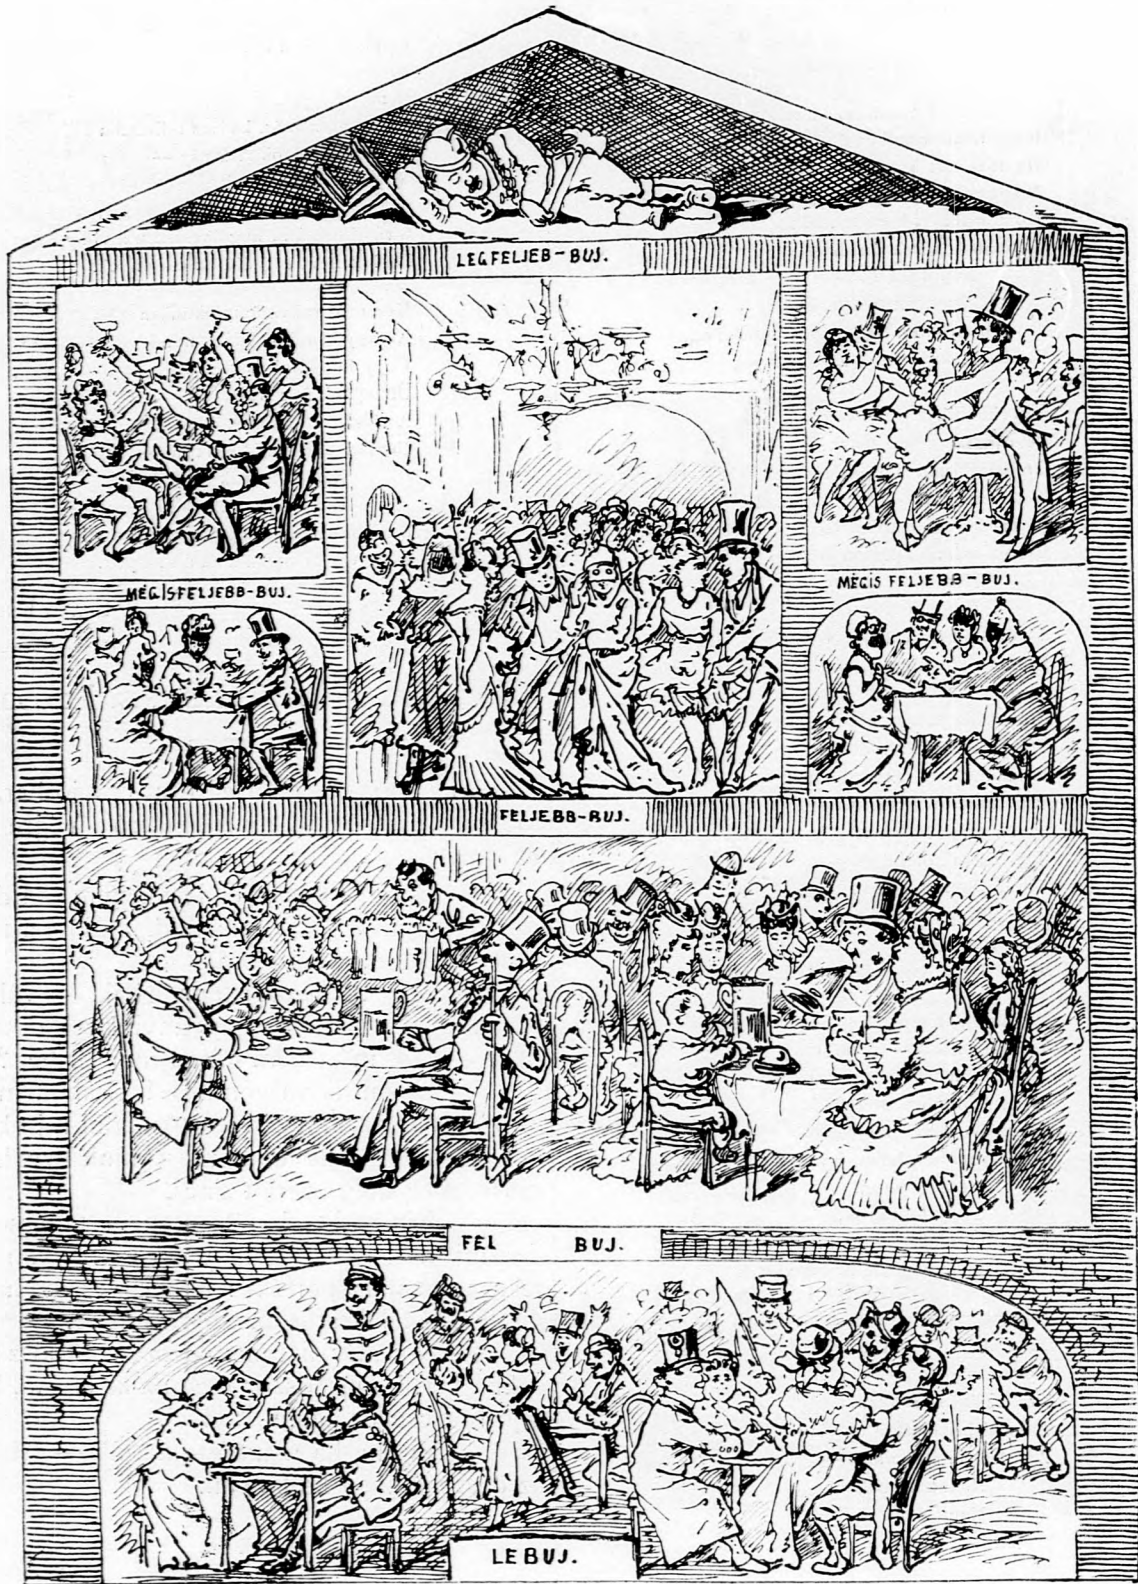 LEGFELJEB-BUJ.
MÉGISFELJEBB-BUJ.
MÉGIS FELJEBB-BUJ.
FELJEBB-BUJ.
FEL BUJ.
LE BUJ.